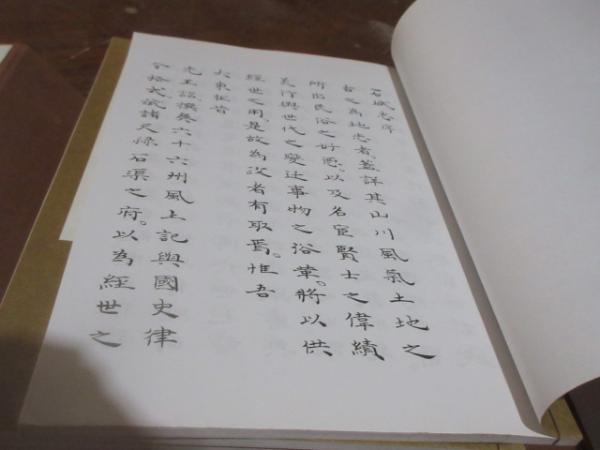 石城志序
古之為地志者。蓋詳其山川風氣土地之
所出民俗之好惡。以及名宦賢士之偉績
美行與世代之變迁事物之沿革。將以供
經世之用。是故為政者有取焉。惟吾
大東在昔
先王詔撰矣六十六州風土記與國史律
令格式藏諸天祿石渠之府。以為經世之